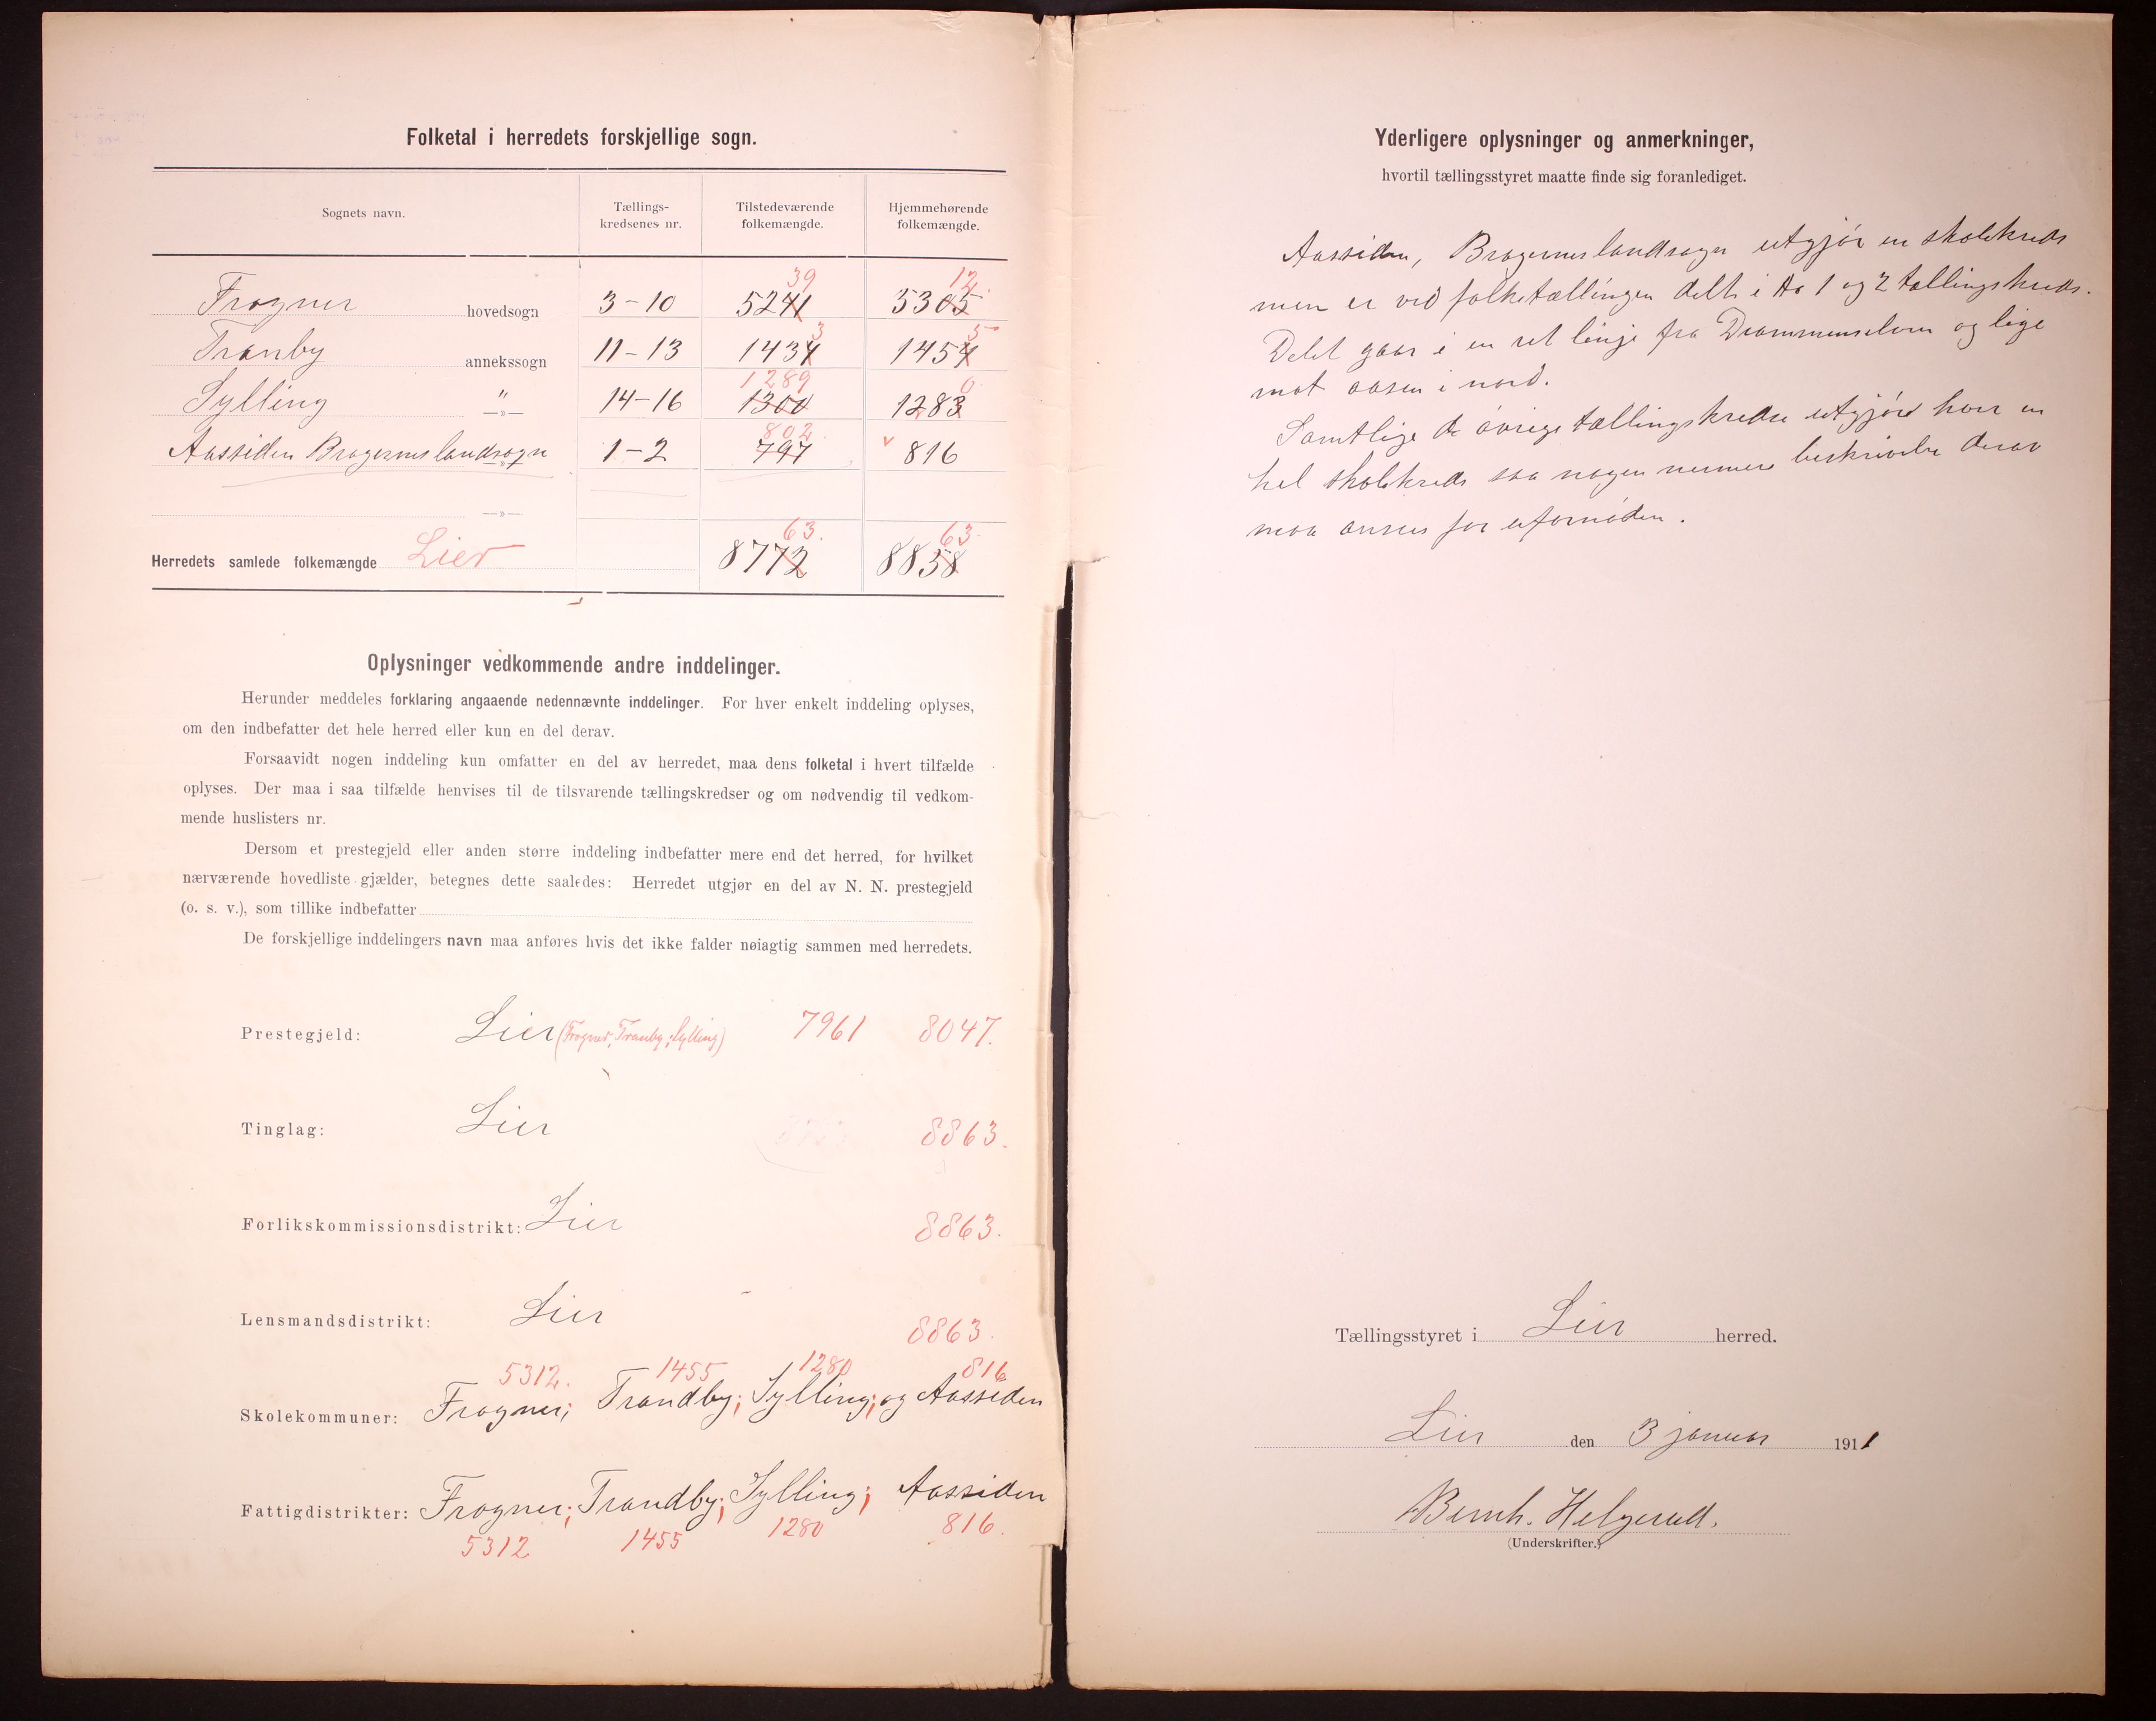 Folketal i herredets forskjellige sogn.
Sognets navn. Tællings-kredsenes nr. Tilstedeværende folkemængde. Hjemmehørende folkemængde.
39 12.
Frogner hovedsogn 3-10 5241 5305
3 5
Tranby annekssogn 11-13 1434 1454
1289 0
Sylling " —»— 14-16 1300 1283
802
Aassiden Bragernes landsogn 1-2 797 v 816
—»—
63. 63.
Herredets samlede folkemængde Lier 8772 8858
Oplysninger vedkommende andre inddelinger.
Herunder meddeles forklaring angaaende nedennævnte inddelinger. For hver enkelt inddeling oplyses,
om den indbefatter det hele herred eller kun en del derav.
Forsaavidt nogen inddeling kun omfatter en del av herredet, maa dens folketal i hvert tilfælde
oplyses. Der maa i saa tilfælde henvises til de tilsvarende tællingskredser og om nødvendig til vedkom-
mende huslisters nr.
Dersom et prestegjeld eller anden større inddeling indbefatter mere end det herred, for hvilket
nærværende hovedliste gjælder, betegnes dette saaledes: Herredet utgjør en del av N. N. prestegjeld
(o. s. v.), som tillike indbefatter
De forskjellige inddelingers navn maa anføres hvis det ikke falder nøiagtig sammen med herredets.
Prestegjeld: Lier (Frogner, Tranby, Sylling) 7961 8047.
Tinglag: Lier 8863.
Forlikskommissionsdistrikt: Lier 8863.
Lensmandsdistrikt: Lier 8863.
5312. 1455 1280 816
Skolekommuner: Frogner; Trandby; Sylling; og Aassiden
Fattigdistrikter: Frogner; Trandby; Sylling; Aassiden
5312 1455 1280 816.
Yderligere oplysninger og anmerkninger,
hvortil tællingsstyret maatte finde sig foranlediget.
Aassiden, Bragernes landsogn utgjør en skolekreds
men er ved folketællingen delt i to 1 og 2 tællingskreds.
Delet gaar i en ret linje fra Drammenselven og lige
mot aasen i nord.
Samtlige de øvrige tællingskredse utgjøre hver en
hel skolekreds saa nogen nermere beskrivelse derav
maa ansees for ufornøden.
Tællingsstyret i Lier herred.
Lier den 3 januar 1911
Bernh. Helgerud.
(Underskrifter.)